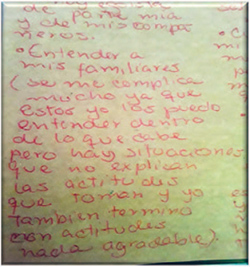 muy egoista
de parte mia
y de mis compa
ñeros.
• Entender a
mis familiares
(se me complica
mucho ya que
estos yo los puedo
entender dentro
de lo que cabe
pero hay situaciones
que no explican
las actitudes
que toman y yo
tambien termino
con actitudes
nada agradable).